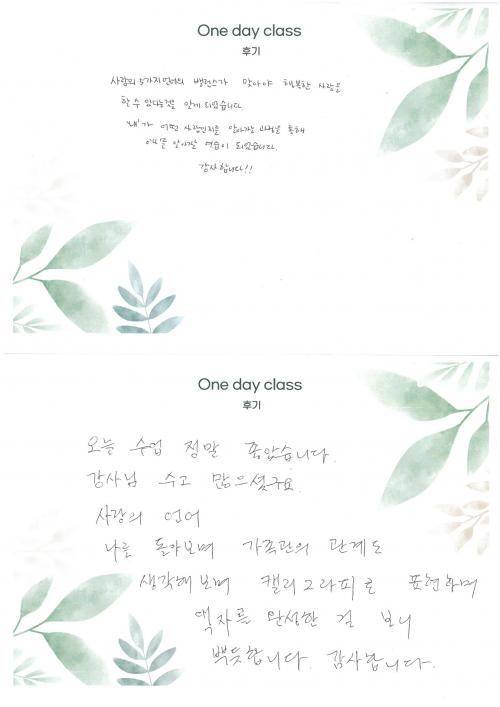 One day class
후기
사랑의 5가지언어의 밸런스가 맞아야 행복한 사랑을
할 수 있다는것을 알게 되었습니다.
'나'가 어떤 사람인지를 알아가는 과정을 통해
알아갈 연습이 되었습니다.
감사합니다!!
One day class
후기
오늘 수업 정말 좋았습니다.
강사님 수고 많으셨구요.
사랑의 언어
나를 돌아보며 가족관의 관계도
생각해보며 캘리그라피로 표현하며
액자를 완성한 걸 보니
뿌듯합니다. 감사합니다.